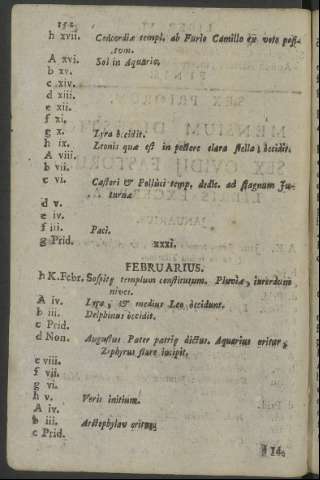 152
h xvii. Concordiæ templ. ab Furio Camillo ex voto posi-
tum.
A xvi. Sol in Aquario.
b xv.
c xiv.
d xiii.
e xii.
f xi.
g x. Lyra occidit.
h ix. Leonis quæ est in pectore clara stella, occidit.
A viii.
b vii.
c vi. Castori & Polluci temp. dedic. ad stagnum Ju-
turnæ
d v.
e iv.
f iii. Paci.
g Prid. xxxi.
FEBRUARIUS.
h K.Febr. Sospitę templum constitutum. Pluviæ, interdum
nives.
A iv. Lyra, & medius Leo occidunt.
b iii. Delphinus occidit.
c Prid.
d Non. Augustus Pater patrię dictus. Aquarius oritur,
Zephyrus flare incipit.
e viii.
f vii.
g vi.
h v. Veris initium.
A iv.
b iii. Arctophylax oritur,
c Prid.
14.